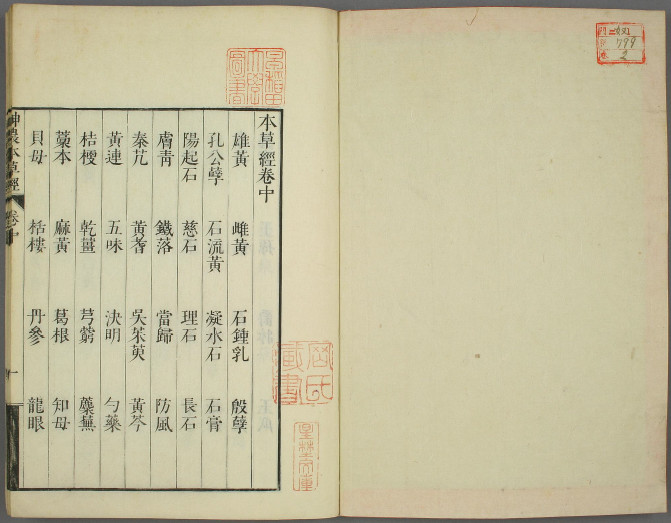 本草經卷中
雄黃 雌黃 石鍾乳 殷孽
孔公孽 石流黃 凝水石 石膏
陽起石 慈石 理石 長石
膚青 鐵落 當歸 防風
秦艽 黃耆 吳茱萸 黃芩
黃連 五味 決明 勺藥
桔梗 乾薑 芎藭 蘪蕪
藁本 麻黃 葛根 知母
貝母 栝樓 丹參 龍眼
神農本草經 卷中 一
799
2